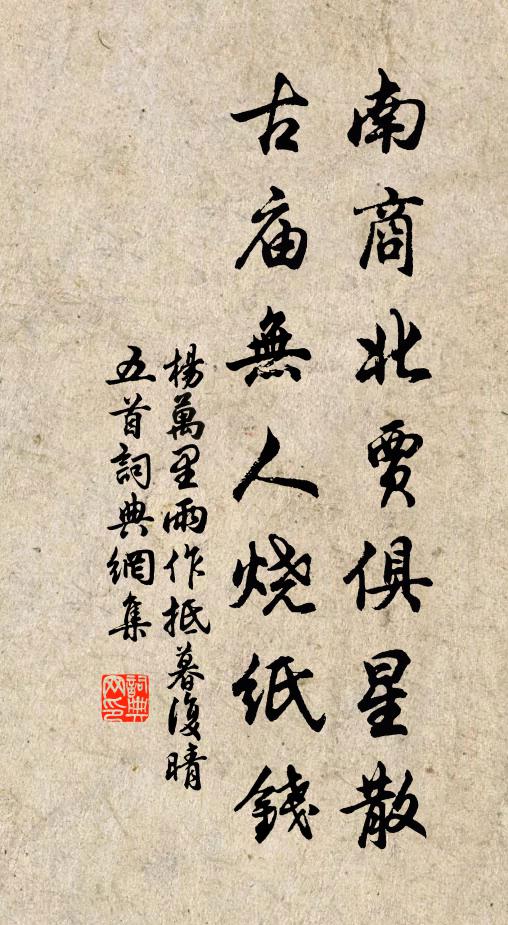 南商北賈俱星散
古庙無人烧紙錢
楊萬里雨作抵暮復晴
五首詞典網集
詞典
网印